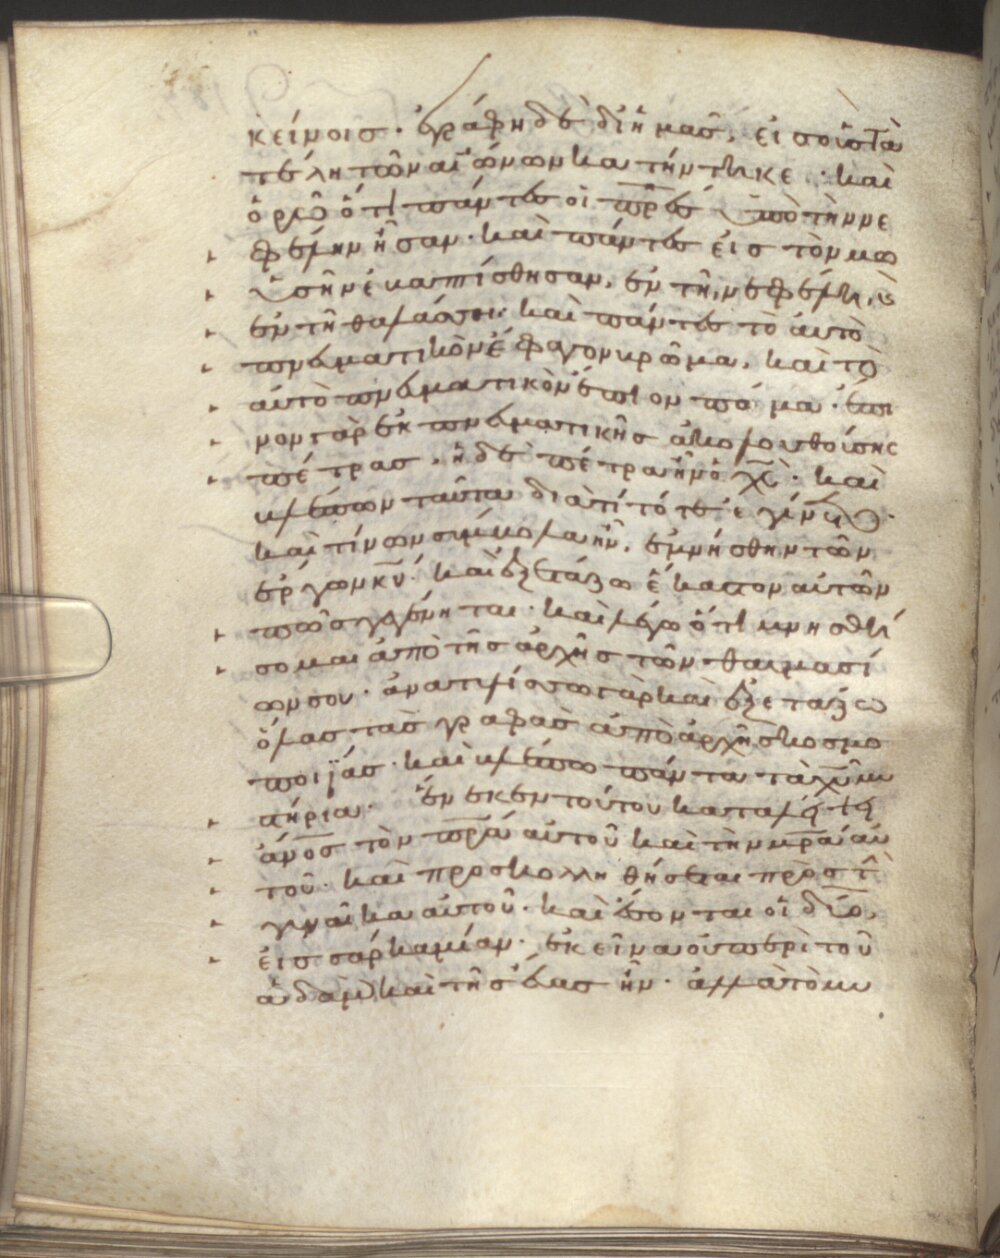 κείνοις· ἐγράφη δὲ δι' ἡμᾶς, εἰς οὓς τὰ
τέλη τῶν αἰώνων κατήντηκε· καὶ
ὁρῶ ὅτι πάντες οἱ πρες ὑπὸ τὴν νε
φέλην ἦσαν· καὶ πάντες εἰς τὸν μω
ϋσῆν ἐβαπτίσθησαν, ἐν τῆ νεφέλη, ϗ
ἐν τῆ θαλάσση· καὶ πάντες τὸ αὐτὸ
πνευματικὸν ἔφαγον βρῶμα, καὶ τὸ
αὐτὸ πνευματικὸν ἔπιον πόμα· ἔπι
νον γὰρ ἐκ πνευματικῆς ἀκολουθούσης
πέτρας, ἡ δὲ πέτρα ἦν ὁ χς· καὶ
βλέπων ταῦτα διατί τότε ἐγίνετο·
καὶ τίνων σύμβολα ἦν, ἐμνήσθην τῶν
ἔργων κυ· καὶ ἐξετάζω ἕκαστον αὐτῶν
πῶς γεγένηται· καὶ λέγω ὅτι μνησθή
σομαι ἀπὸ τῆς ἀρχῆς τῶν θαυμασί
ων σου· ἀνατυλίσσω γὰρ καὶ ἐξετάζω
ὅλας τὰς γραφὰς ἀπὸ ἀρχῆς κοσμο
ποιΐας· καὶ βλέπω πάντα τὰ χυ μυ
στήρια· ἕνεκεν τούτου καταλείψει
ανος τὸν πρα αὐτοῦ καὶ τὴν μρα αὐ
τοῦ· καὶ προσκολληθήσεται πρὸς τὴν
γυναῖκα αὐτοῦ· καὶ ἔσονται οἱ δύο,
εἰς σάρκα μίαν· ἐκεῖνα οὐ περὶ τοῦ
ἀδὰμ καὶ τῆς εὔας ἦν· ἀλλὰ τὸ μυ